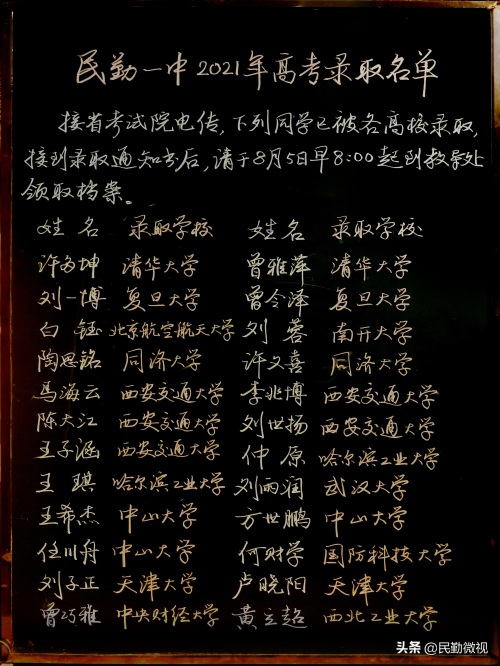 民勤一中2021年高考录取名单
接省考试院电传,下列同学已被各高校录取,
接到录取通知书后,请于8月5日早8:00起到教导处
领取档案。
姓名 录取学校 姓名 录取学校
许多坤 清华大学 曾雅萍 清华大学
刘一博 复旦大学 曾令泽 复旦大学
白钰 北京航空航天大学 刘蓉 南开大学
陶思铭 同济大学 许文喜 同济大学
马海云 西安交通大学 李兆博 西安交通大学
陈大江 西安交通大学 刘世扬 西安交通大学
王子涵 西安交通大学 仲原 哈尔滨工业大学
王琪 哈尔滨工业大学 刘雨润 武汉大学
王希杰 中山大学 方世鹏 中山大学
任川舟 中山大学 何财学 国防科技大学
刘子正 天津大学 卢晓阳 天津大学
曾巧雅 中央财经大学 黄立超 西北工业大学
头条 @民勤微视